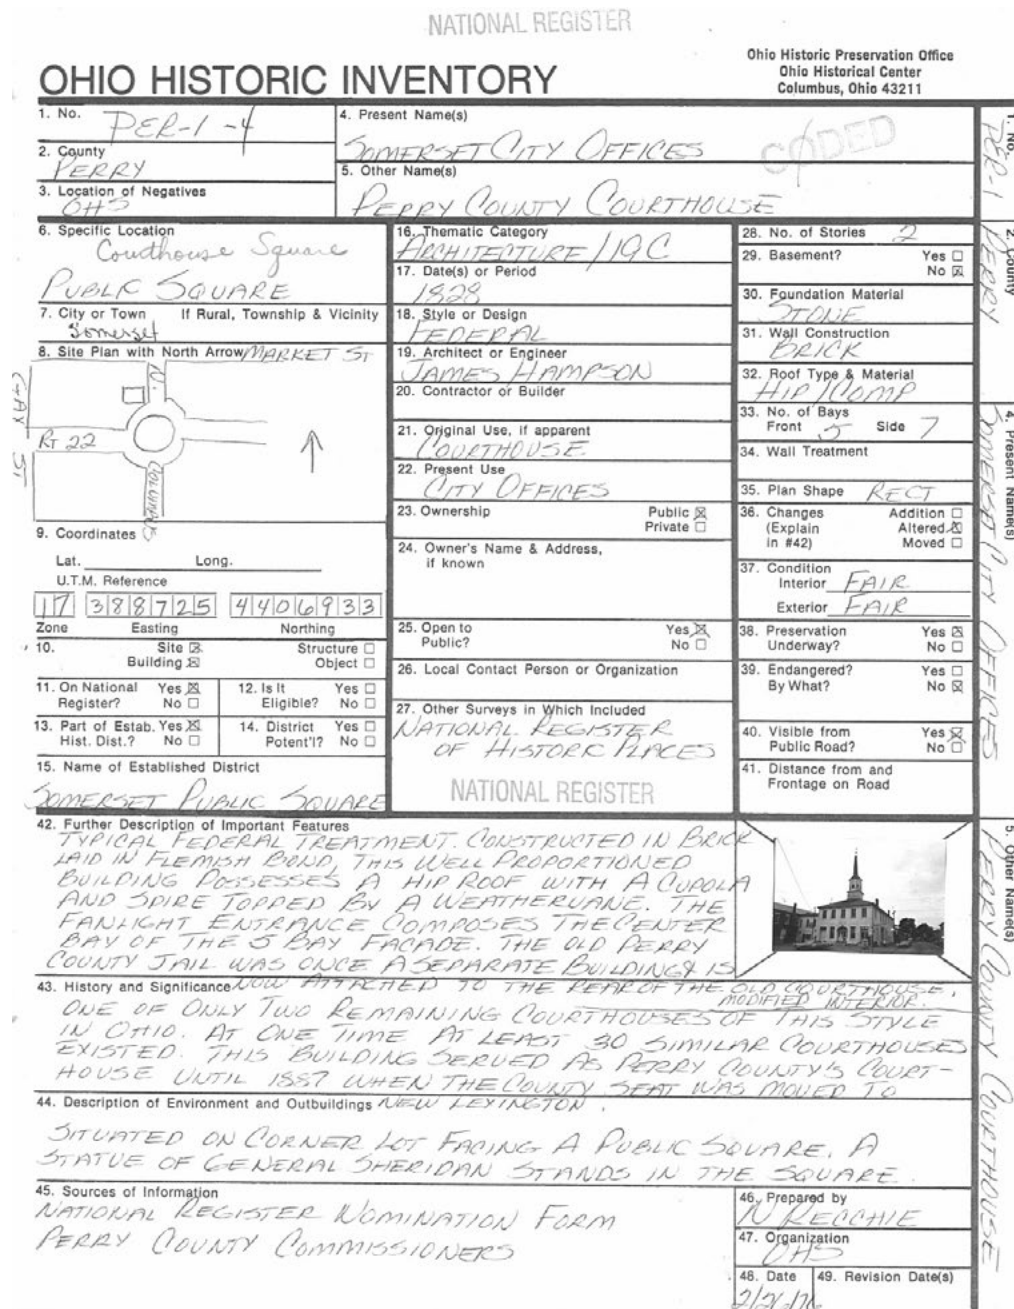 NATIONAL REGISTER
Ohio Historic Preservation Office
Ohio Historical Center
Columbus, Ohio 43211
OHIO HISTORIC INVENTORY
1. No.
PER-1-4
2. County
PERRY
3. Location of Negatives
OHS
4. Present Name(s)
SOMERSET CITY OFFICES
CODED
5. Other Name(s)
PERRY COUNTY COURTHOUSE
6. Specific Location
Courthouse Square
PUBLIC SQUARE
7. City or Town If Rural, Township & Vicinity
Somerset
8. Site Plan with North Arrow
MARKET ST
N.
GAY ST
RT 22
COLUMBUS
9. Coordinates
Lat. Long.
U.T.M. Reference
17 388725 4406933
Zone Easting Northing
10. Site ☒ Structure ☐
Building ☒ Object ☐
11. On National Register? Yes ☒ No ☐
12. Is It Eligible? Yes ☐ No ☐
13. Part of Estab. Hist. Dist.? Yes ☒ No ☐
14. District Potent'l? Yes ☐ No ☐
15. Name of Established District
SOMERSET PUBLIC SQUARE
16. Thematic Category
ARCHITECTURE/19C
17. Date(s) or Period
1828
18. Style or Design
FEDERAL
19. Architect or Engineer
JAMES HAMPSON
20. Contractor or Builder
21. Original Use, if apparent
COURTHOUSE
22. Present Use
CITY OFFICES
23. Ownership Public ☒
Private ☐
24. Owner's Name & Address,
if known
25. Open to Public? Yes ☒ No ☐
26. Local Contact Person or Organization
27. Other Surveys in Which Included
NATIONAL REGISTER
OF HISTORIC PLACES
NATIONAL REGISTER
28. No. of Stories 2
29. Basement? Yes ☐
No ☒
30. Foundation Material
STONE
31. Wall Construction
BRICK
32. Roof Type & Material
HIP/COMP
33. No. of Bays
Front 5 Side 7
34. Wall Treatment
35. Plan Shape RECT
36. Changes Addition ☐
(Explain Altered ☒
in #42) Moved ☐
37. Condition
Interior FAIR
Exterior FAIR
38. Preservation Yes ☒
Underway? No ☐
39. Endangered? Yes ☐
By What? No ☒
40. Visible from Yes ☒
Public Road? No ☐
41. Distance from and
Frontage on Road
42. Further Description of Important Features
TYPICAL FEDERAL TREATMENT. CONSTRUCTED IN BRICK
LAID IN FLEMISH BOND, THIS WELL PROPORTIONED
BUILDING POSSESSES A HIP ROOF WITH A CUPOLA
AND SPIRE TOPPED BY A WEATHERVANE. THE
FANLIGHT ENTRANCE COMPOSES THE CENTER
BAY OF THE 5 BAY FACADE. THE OLD PERRY
COUNTY JAIL WAS ONCE A SEPARATE BUILDING & IS
NOW ATTACHED TO THE REAR OF THE OLD COURTHOUSE.
MODIFIED INTERIOR.
43. History and Significance
ONE OF ONLY TWO REMAINING COURTHOUSES OF THIS STYLE
IN OHIO. AT ONE TIME AT LEAST 30 SIMILAR COURTHOUSES
EXISTED. THIS BUILDING SERVED AS PERRY COUNTY'S COURT-
HOUSE UNTIL 1887 WHEN THE COUNTY SEAT WAS MOVED TO
NEW LEXINGTON.
44. Description of Environment and Outbuildings
SITUATED ON CORNER LOT FACING A PUBLIC SQUARE. A
STATUE OF GENERAL SHERIDAN STANDS IN THE SQUARE.
45. Sources of Information
NATIONAL REGISTER NOMINATION FORM
PERRY COUNTY COMMISSIONERS
46. Prepared by
N RECCHIE
47. Organization
OHS
48. Date
2/26/76
49. Revision Date(s)
1. No.
PER-1
2. County
PERRY
4. Present Name(s)
SOMERSET CITY OFFICES
5. Other Name(s)
PERRY COUNTY COURTHOUSE